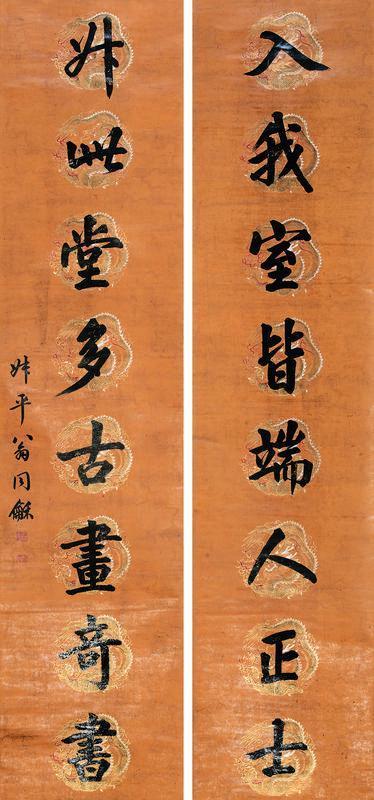 入我室皆端人正士
升此堂多古畫奇書
叔平翁同龢